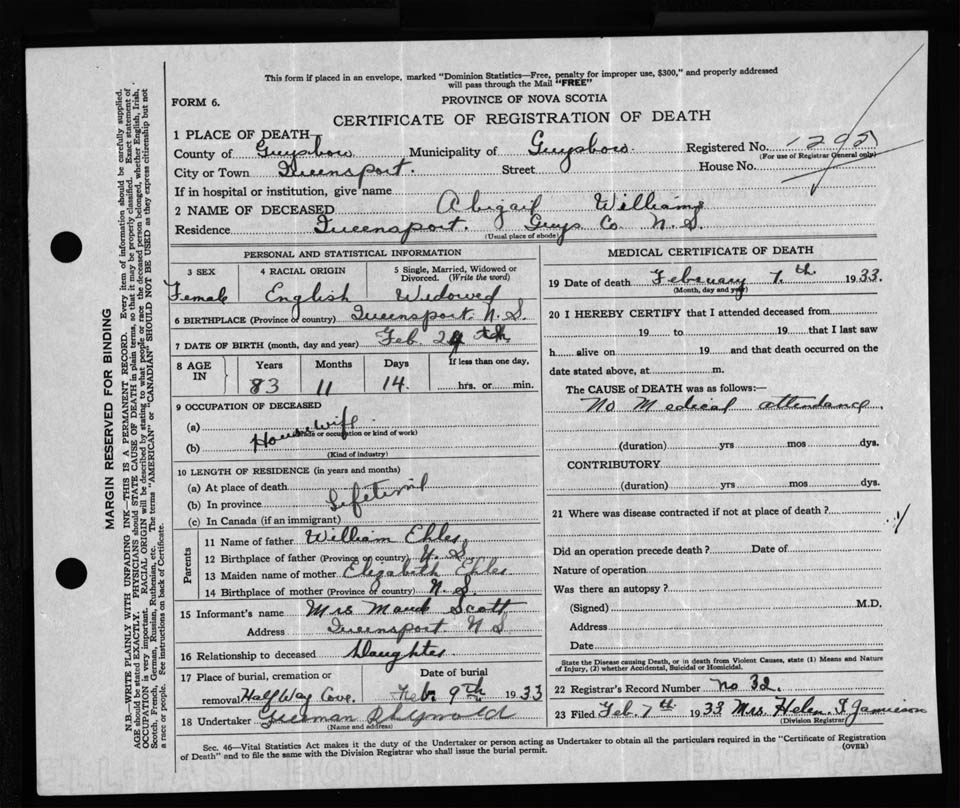 This form if placed in an envelope, marked "Dominion Statistics—Free, penalty for improper use, $300," and properly addressed
will pass through the Mail "FREE"
FORM 6.
PROVINCE OF NOVA SCOTIA
CERTIFICATE OF REGISTRATION OF DEATH
1 PLACE OF DEATH—
County of Guysboro Municipality of Guysboro Registered No.
(For use of Registrar General only)
City or Town Queensport. Street House No.
If in hospital or institution, give name
2 NAME OF DECEASED Abigail Williams
Residence Queensport. Guys Co. N. S.
(Usual place of abode)
PERSONAL AND STATISTICAL INFORMATION
3 SEX 4 RACIAL ORIGIN 5 Single, Married, Widowed or Divorced. (Write the word)
Female English Widowed
6 BIRTHPLACE (Province or country) Queensport. N. S.
7 DATE OF BIRTH (month, day and year) Feb. 24 th
8 AGE IN Years Months Days If less than one day,
83 11 14. hrs. or min.
9 OCCUPATION OF DECEASED
(a) Housewife
(Trade or occupation or kind of work)
(b)
(Kind of industry)
10 LENGTH OF RESIDENCE (in years and months)
(a) At place of death
(b) In province
(c) In Canada (if an immigrant)
Parents
11 Name of father William Ehler
12 Birthplace of father (Province or country) N. S.
13 Maiden name of mother Elizabeth Ehler
14 Birthplace of mother (Province or country) N. S.
15 Informant's name Mrs Maud Scott
Address Queensport N S
16 Relationship to deceased Daughter
17 Place of burial, cremation or Date of burial
removal Half Way Cove. Feb 9th 1933
18 Undertaker Freeman
(Name and address)
MEDICAL CERTIFICATE OF DEATH
19 Date of death February 7.th 1933.
(Month, day and year)
20 I HEREBY CERTIFY that I attended deceased from
19 to 19 that I last saw
h alive on 19 and that death occurred on the
date stated above, at m.
The CAUSE of DEATH was as follows:—
No Medical attendance.
(duration) yrs mos dys.
CONTRIBUTORY
(duration) yrs mos dys.
21 Where was disease contracted if not at place of death?
Did an operation precede death? Date of
Nature of operation
Was there an autopsy?
(Signed) M.D.
Address
Date
State the Disease causing Death, or in death from Violent Causes, state (1) Means and Nature
of Injury, (2) whether Accidental, Suicidal or Homicidal.
22 Registrar's Record Number No 32.
23 Filed Feb. 7th 1933 Mrs. Helen J Jamieson
(Division Registrar)
Sec. 46—Vital Statistics Act makes it the duty of the Undertaker or person acting as Undertaker to obtain all the particulars required in the "Certificate of Registration
of Death" and to file the same with the Division Registrar who shall issue the burial permit.
(OVER)
MARGIN RESERVED FOR BINDING
N.B.—WRITE PLAINLY WITH UNFADING INK—THIS IS A PERMANENT RECORD. Every item of information should be carefully supplied.
AGE should be stated EXACTLY. PHYSICIANS should STATE CAUSE OF DEATH in plain terms, so that it may be properly classified. Exact statement of
OCCUPATION is very important. RACIAL ORIGIN will be described by stating to what people or race the deceased person belonged, whether English, Irish,
Scotch, French, German, Russian, Ruthenian, etc. The terms "AMERICAN" or "CANADIAN" SHOULD NOT BE USED as they express citizenship but not
a race or people. See instructions on back of Certificate.